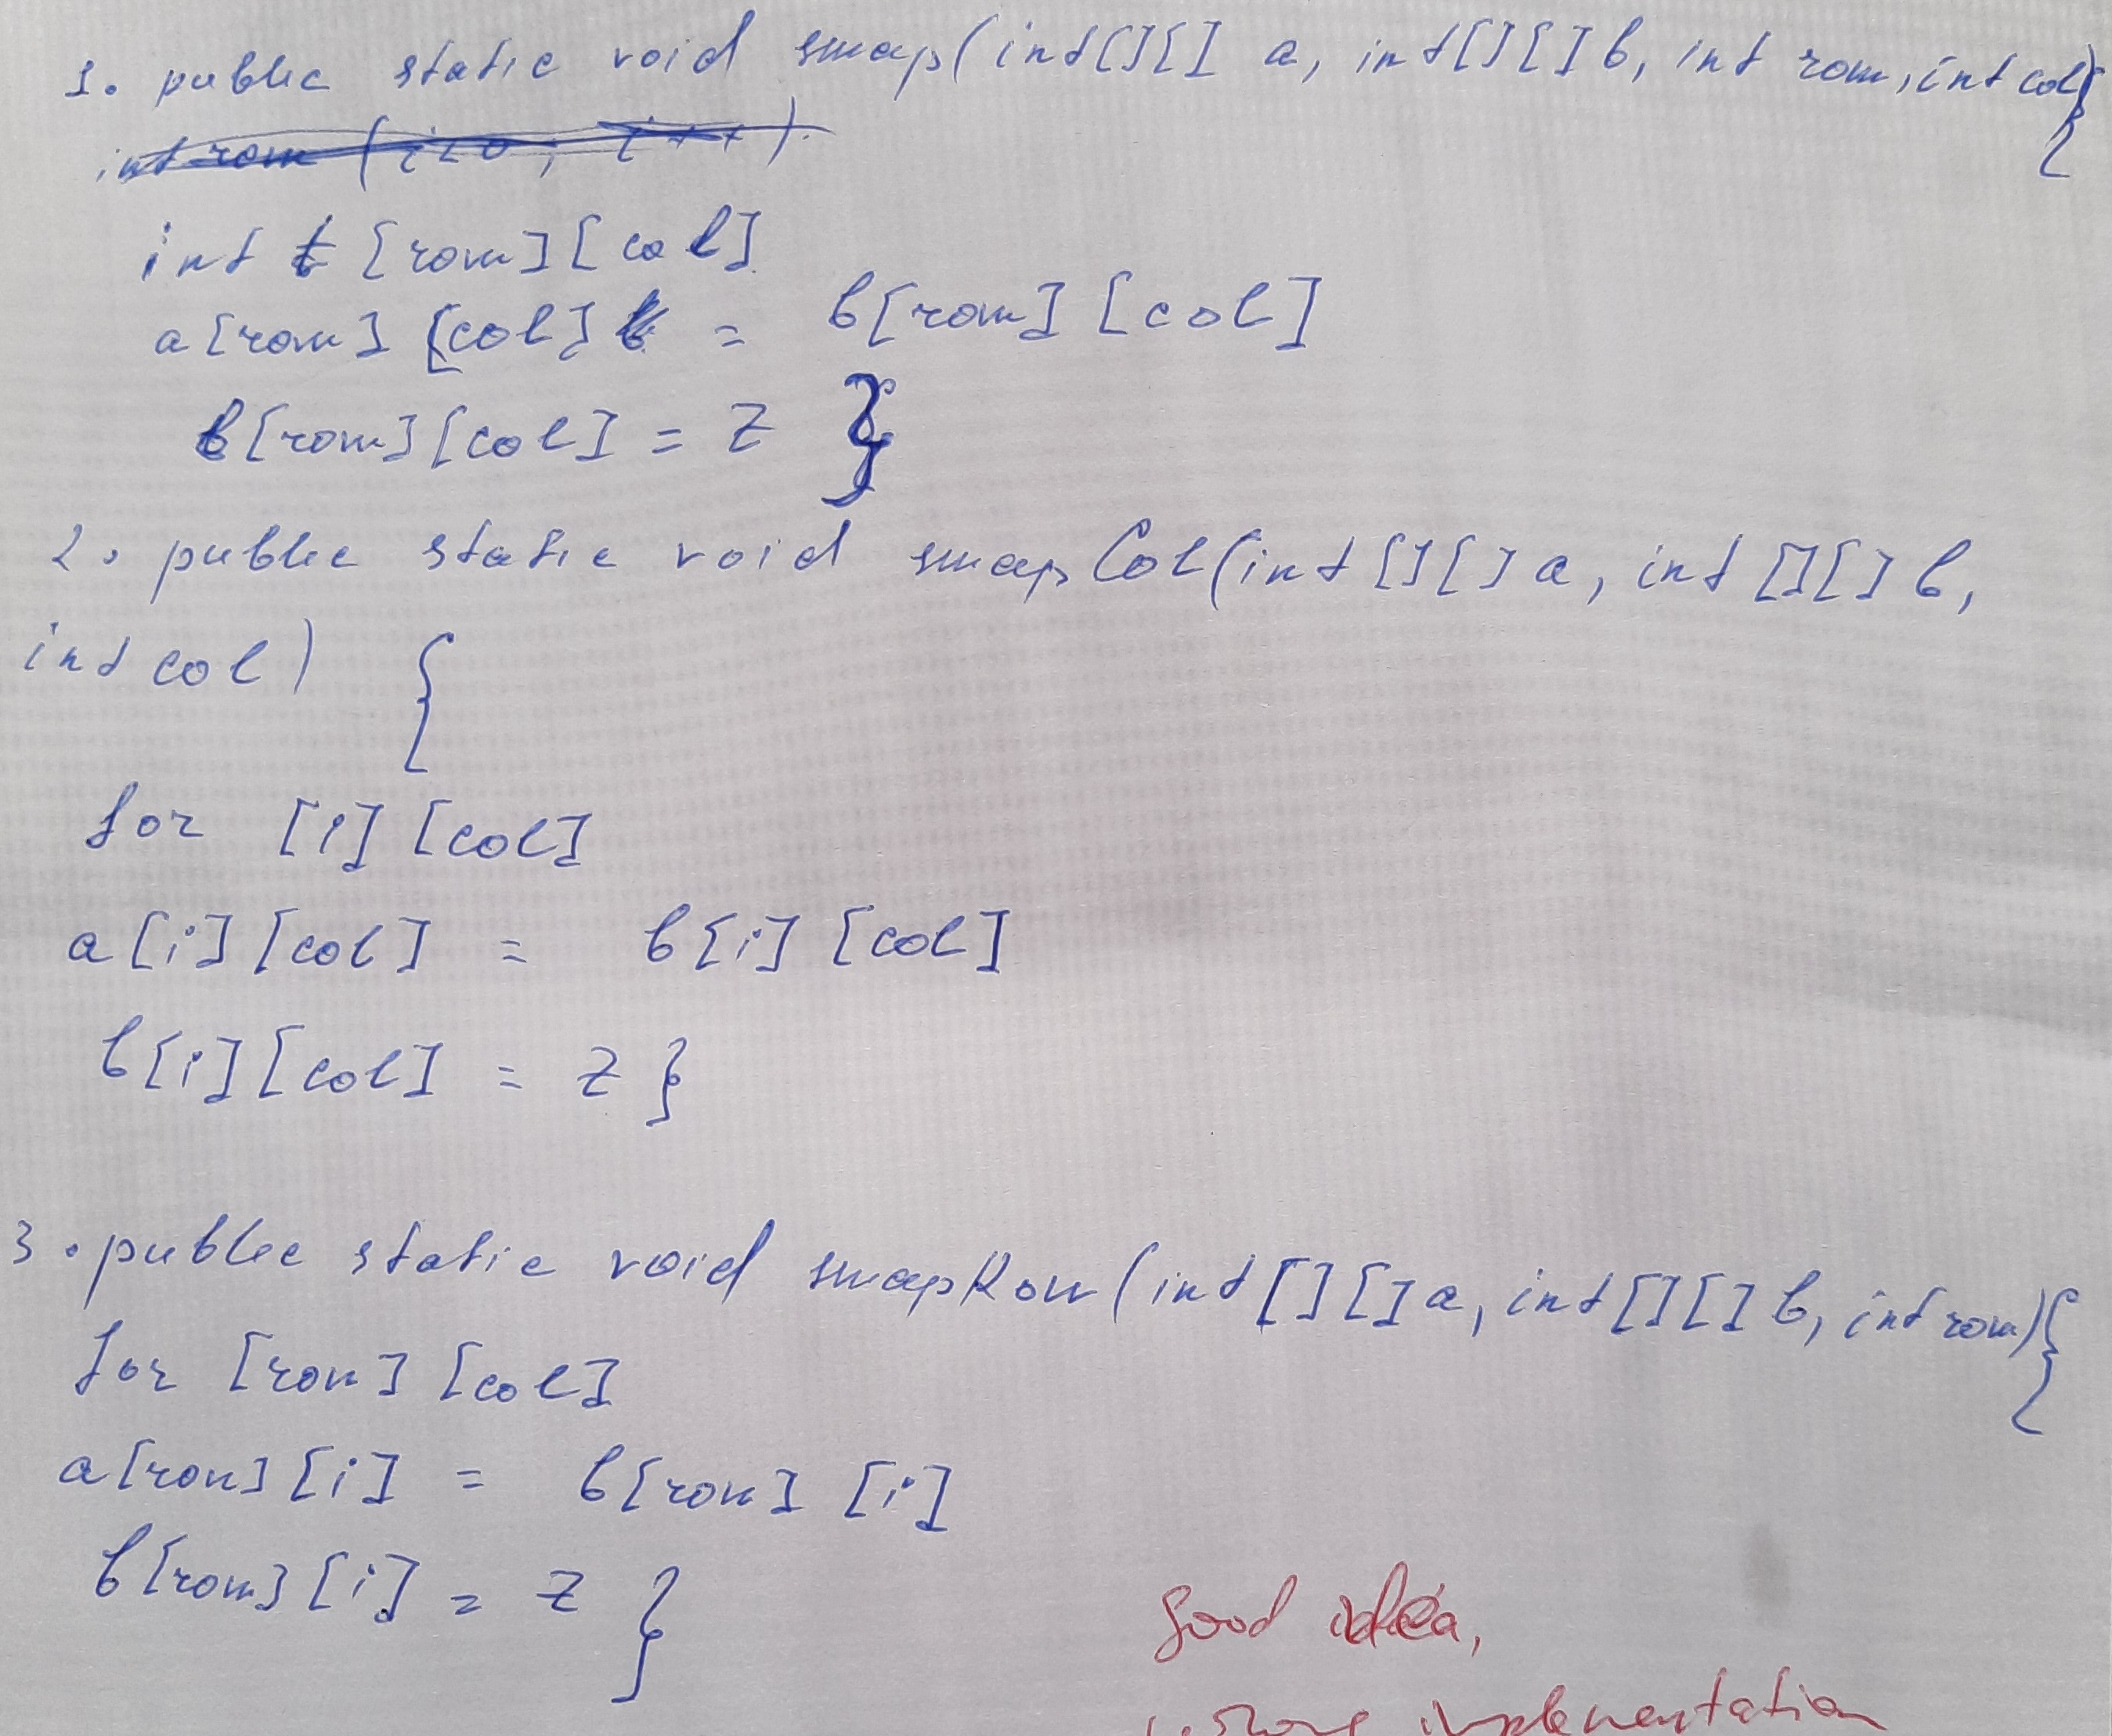 1. public static void swap(int[][] a, int[][] b, int row, int col){
int row (i<0; i++).
int t [row][col]
a[row] [col] = b[row] [col]
b[row][col] = z }
2. public static void swapCol(int[][] a, int [][] b,
int col) {
for [i] [col]
a[i][col] = b[i] [col]
b[i][col] = z }
3. public static void swapRow(int[][] a, int[][] b, int row){
for [row] [col]
a[row][i] = b[row] [i]
b[row][i] = z }
Good idea,
implementation